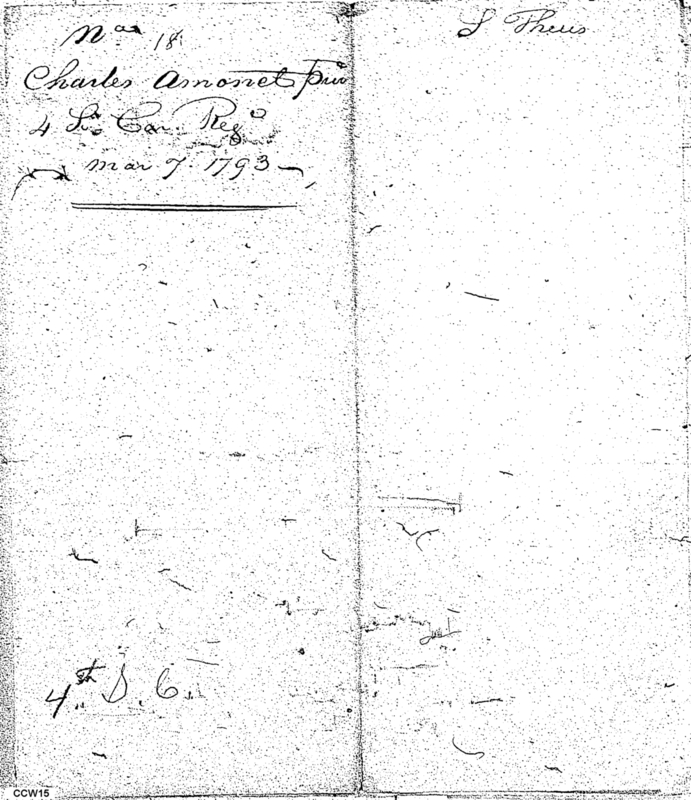 No 18
Charles Amonet priv
4 So Car Rego
Mar 7. 1793
4th S. C.
S Theus
CCW15